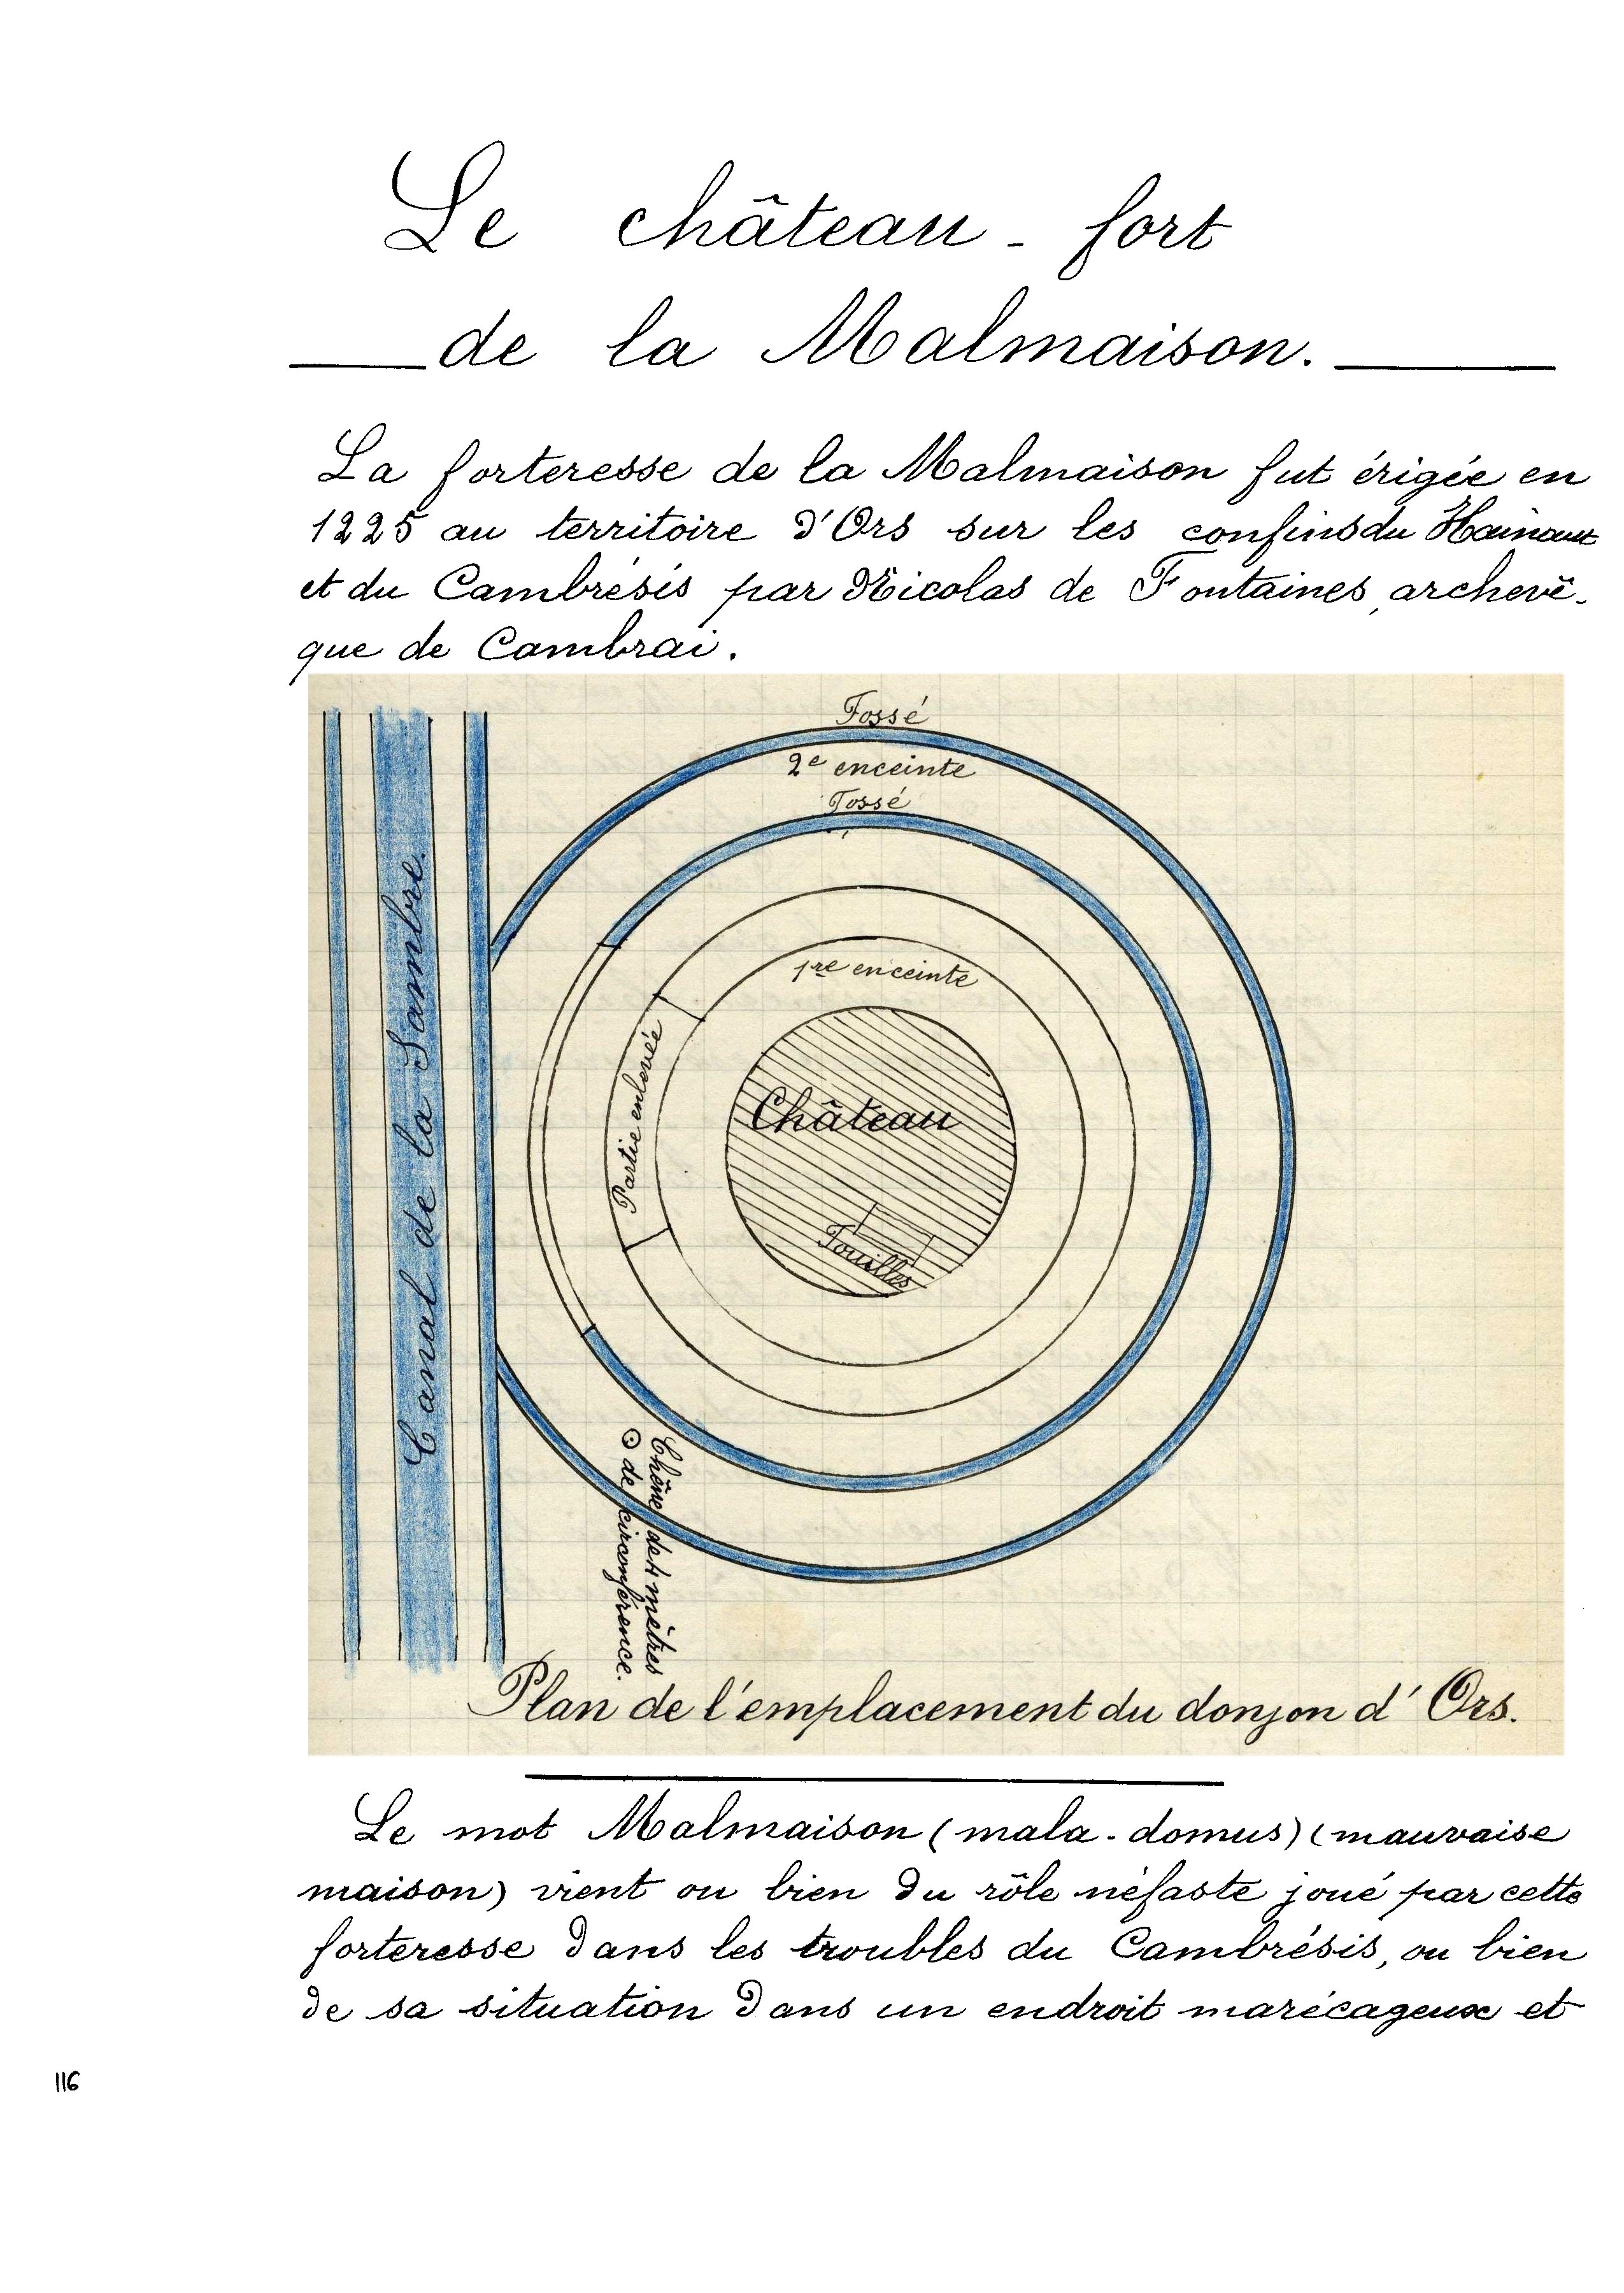 Le château-fort
de la Malmaison.
La forteresse de la Malmaison fut érigée en
1225 au territoire d'Ors sur les confins du Hainaut
et du Cambrésis par Nicolas de Fontaines, archevê-
que de Cambrai.
Fossé
2e enceinte
Fossé
1re enceinte
Canal de la Sambre.
Partie enlevée
Château
Fouilles
Chêne de 4 mètres
de circonférence.
Plan de l'emplacement du donjon d'Ors.
Le mot Malmaison (mala-domus) (mauvaise
maison) vient ou bien du rôle néfaste joué par cette
forteresse dans les troubles du Cambrésis, ou bien
de sa situation dans un endroit marécageux et
116